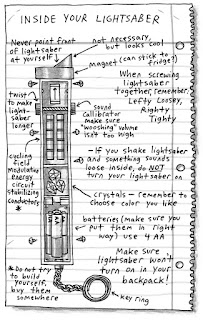 INSIDE YOUR LIGHTSABER
Never point front
of lightsaber
at yourself!
not necessary,
but looks cool
magnet (can stick to
fridge?)
When screwing
lightsaber
together, remember:
Lefty Loosey,
Righty
Tighty
twist
to make
light-
saber
longer
sound
callibrator
make sure
"wooshing" volume
isn't too high
cycling
field
modulating
energy
circuit
stabilizing
conductors *
- If you shake lightsaber
and something sounds
loose inside, do NOT
turn your lightsaber on
crystals - remember to
choose color you like
batteries (make sure you
put them in right!)
use 4 AA
Make sure
lightsaber won't
turn on in your
backpack!
* Do not try
to build
yourself,
buy them
somewhere
key ring